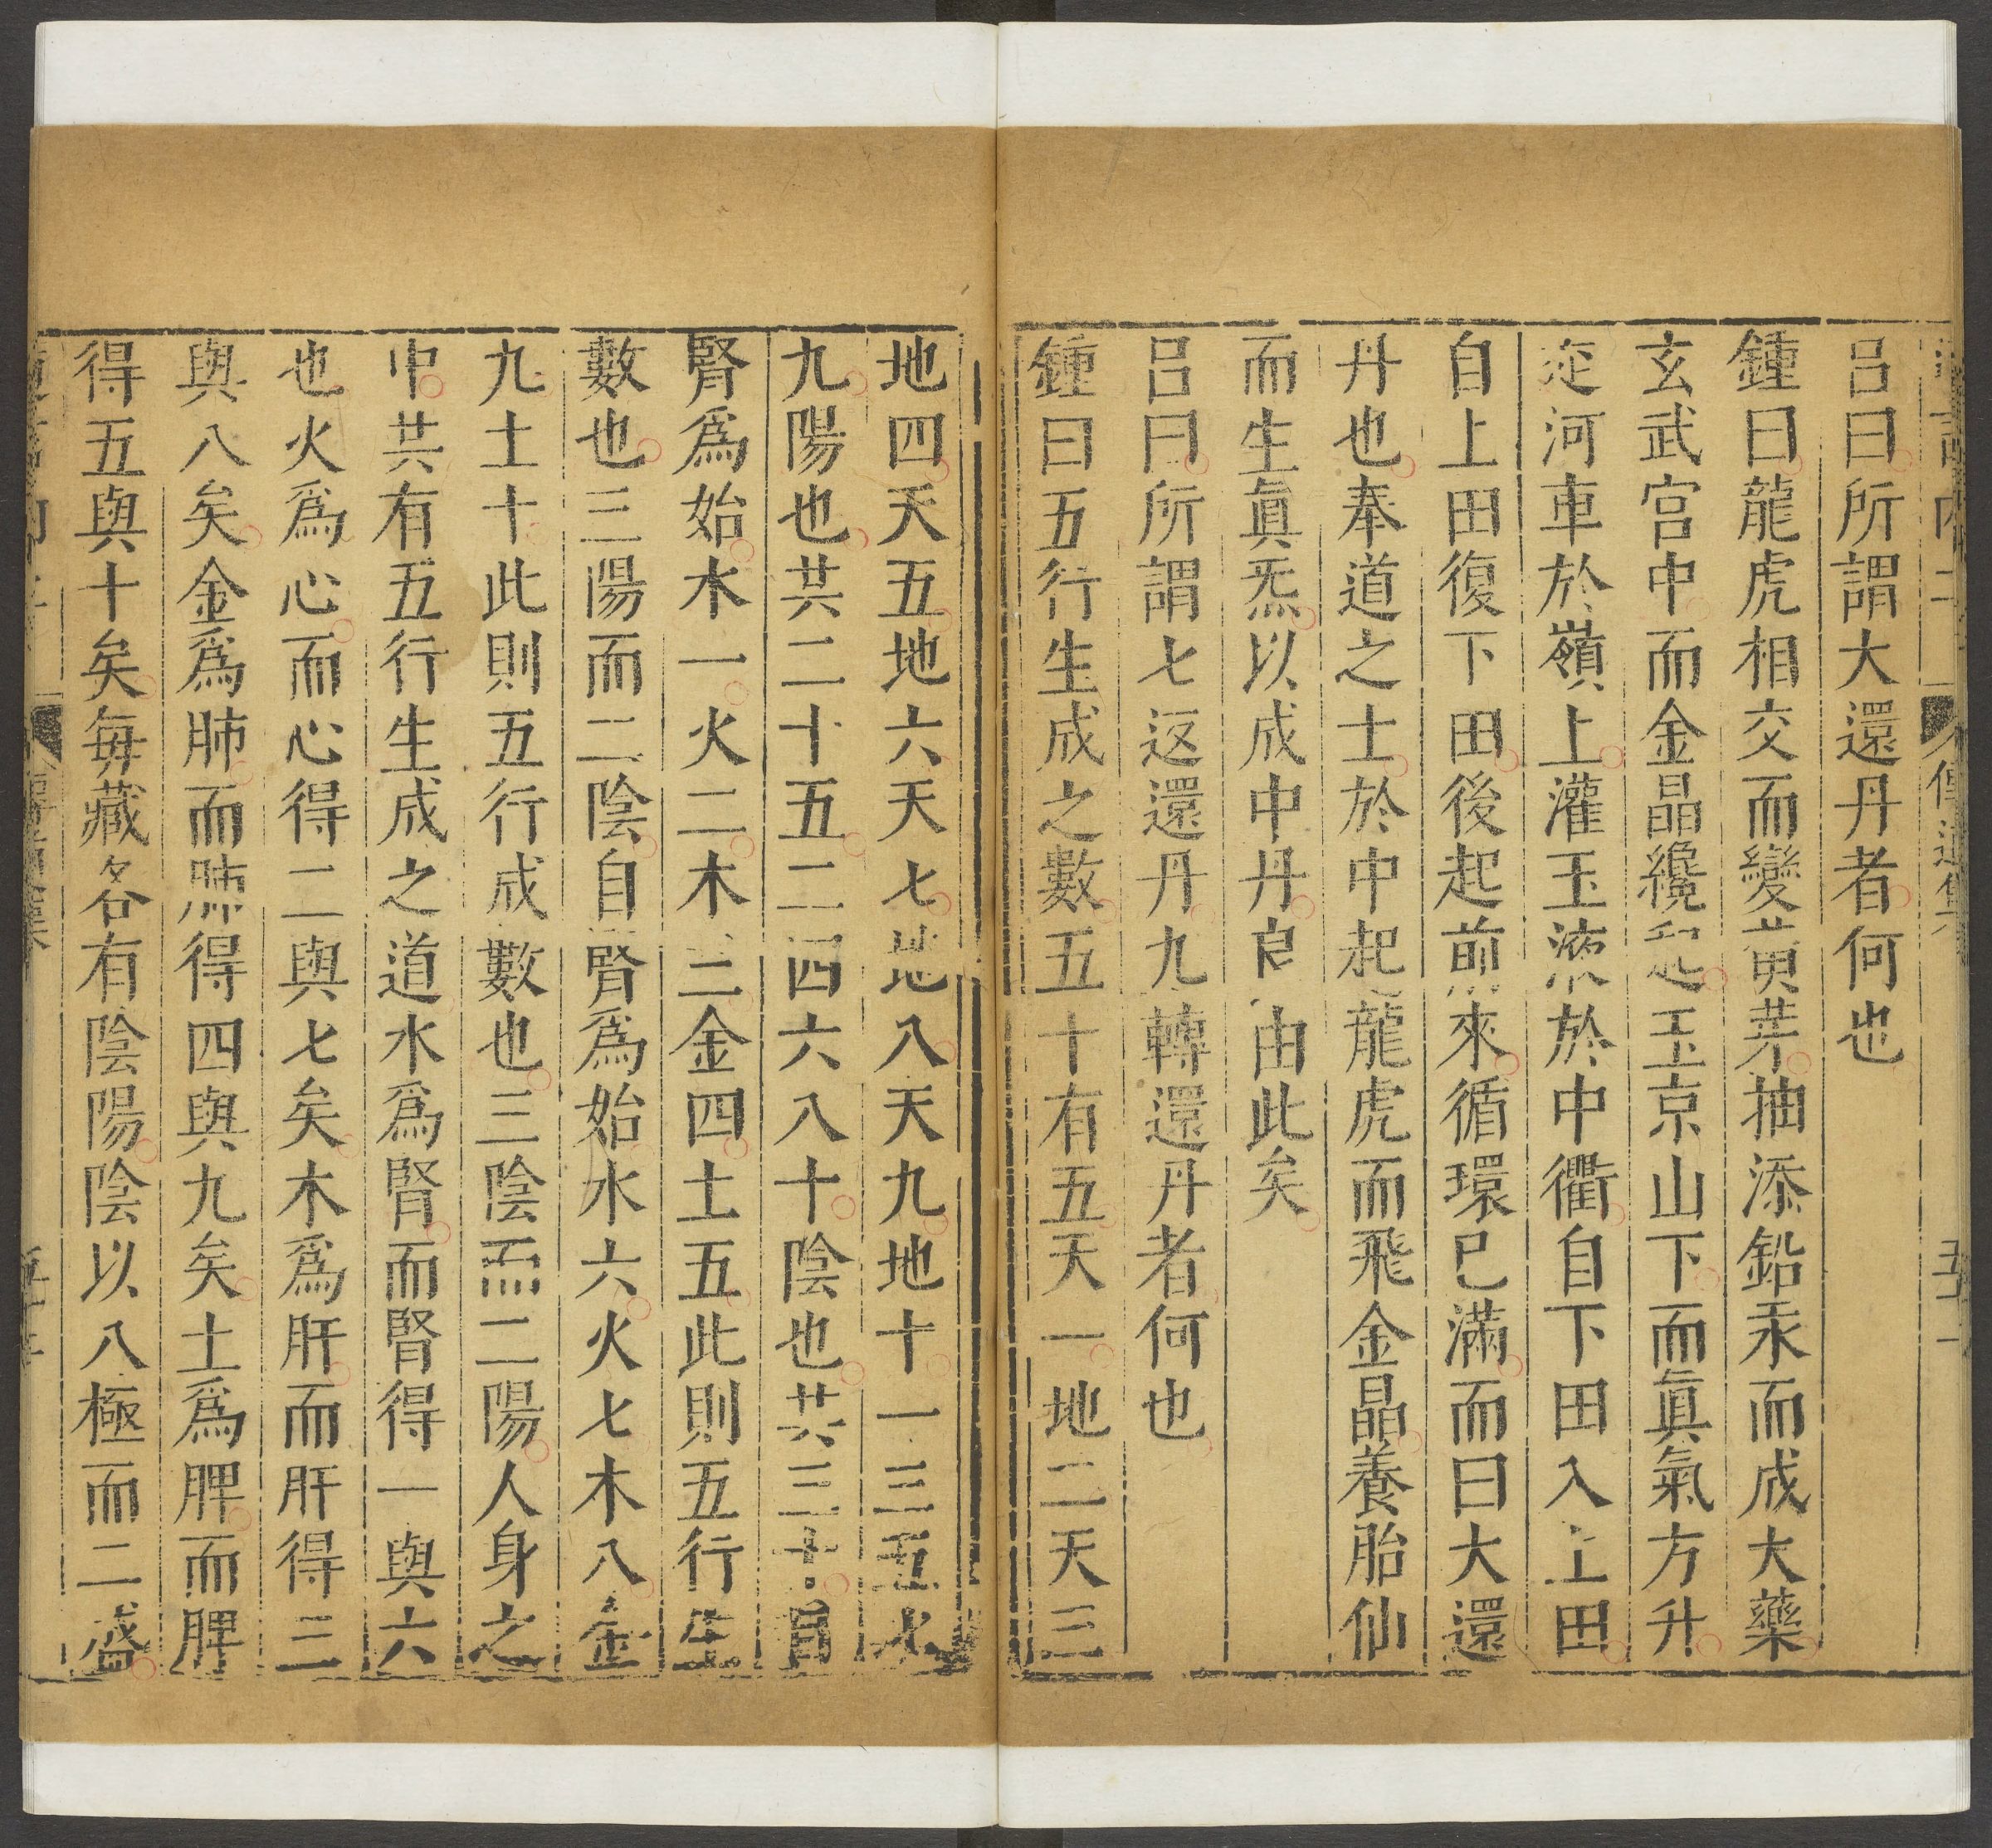 傳道集
呂曰所謂大還丹者何也
鍾曰龍虎相交而變黃芽抽添鉛汞而成大藥
玄武宮中而金晶纔起玉京山下而眞氣方升
走河車於嶺上灌玉液於中衢自下田入上田
自上田復下田後起前來循環已滿而曰大還
丹也奉道之士於中起龍虎而飛金晶養胎仙
而生眞炁以成中丹良由此矣
呂曰所謂七返還丹九轉還丹者何也
鍾曰五行生成之數五十有五天一地二天三
地四天五地六天七地八天九地十一三五七
九陽也共二十五二四六八十陰也共三十自
腎爲始水一火二木三金四土五此則五行生
數也三陽而二陰自腎爲始水六火七木八金
九土十此則五行成數也三陰而二陽人身之
中共有五行生成之道水爲腎而腎得一與六
也火爲心而心得二與七矣木爲肝而肝得三
與八矣金爲肺而肺得四與九矣土爲脾而脾
得五與十矣每藏各有陰陽陰以八極而二盛